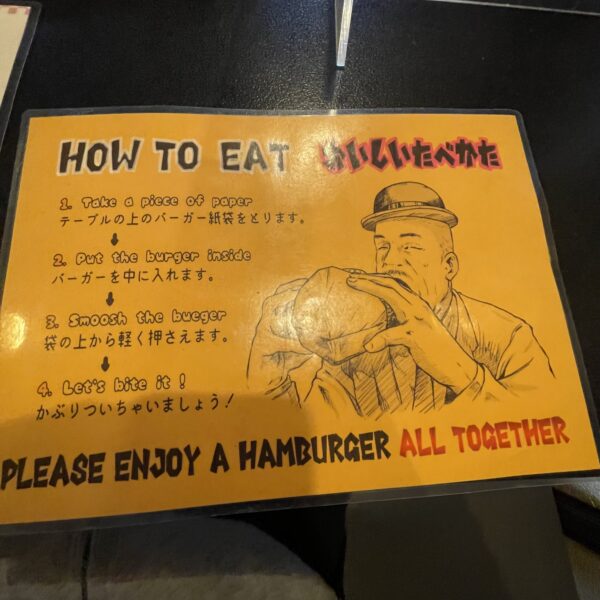 HOW TO EAT おいしいたべかた
1. Take a piece of paper
テーブルの上のバーガー紙袋をとります。
2. Put the burger inside
バーガーを中に入れます。
3. Smoosh the bueger
袋の上から軽く押さえます。
4. Let's bite it !
かぶりついちゃいましょう!
PLEASE ENJOY A HAMBURGER ALL TOGETHER